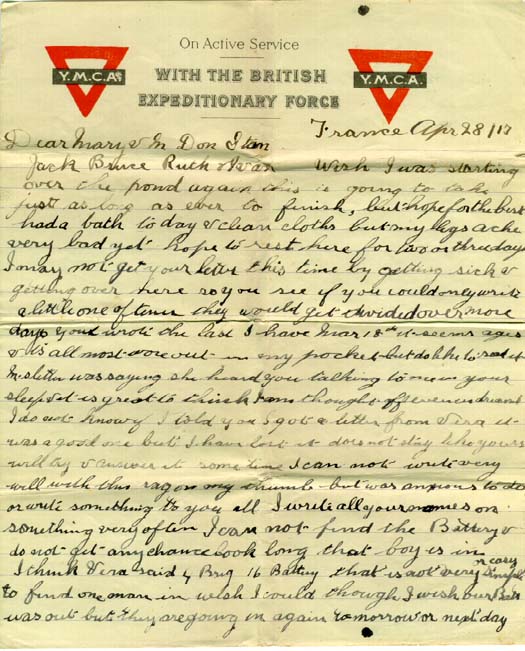 On Active Service
Y.M.C.A.
WITH THE BRITISH
Y.M.C.A.
EXPEDITIONARY FORCE
France Apr 28/17
Dear Mary & M Don Stan
Jack Bruce Ruth & Ivan Wish I was starting
over the pond again this is going to take
just as long as ever to finish, but hope for the best
had a bath to day & clean cloths but my legs ache
very bad yet hope to rest here for two or three days
I may not get your letter this time by getting sick &
getting over here so you see if you could only write
a little one often they would get divided over more
days you wrote the last I have Mar 18th it seems ages
& is all most wore out in my pocket but do like to read it
letter was saying she heard you talking to me in your
sleep it is great to think I am thought of even in dreams
I do not know if I told you I got a letter from Vera it
was a good one but I have lost it does not stay like yours
will try & answer it some time I can not write very
well with this rag on my thumb but was anxious to do
or write something to you all I write all your names on
something very often I can not find the Battery &
do not get any chance look long that boy is in
I think Vera said 4 Brig 16 Battery that is not very easy
to find one man in wish I could though I wish our
was out but they are going in again tomorrow or next day